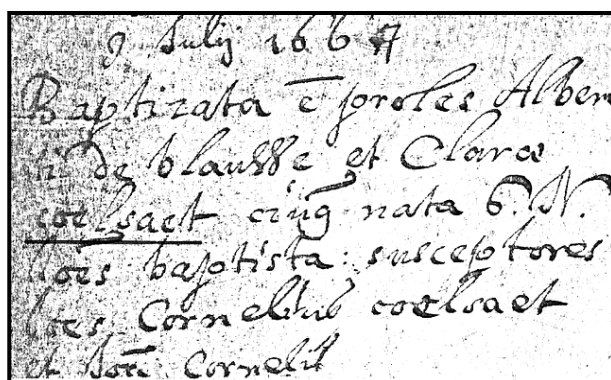 9 Julij 1667
Baptizata e proles Alber
de blausse et Clara
coelsaet nata 6. N.
baptista: susceptores
Cornelius coelsaet
et Cornelij